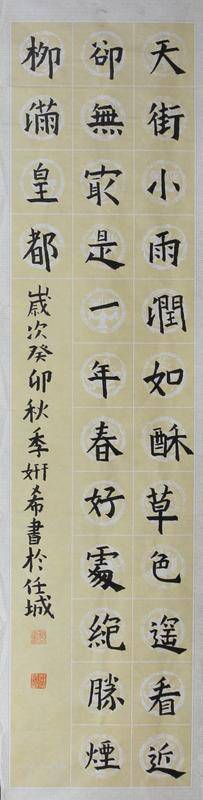 天街小雨潤如酥草色遥看近
卻無㝡是一年春好處絕勝煙
柳滿皇都
歲次癸卯秋季妍希書於任城